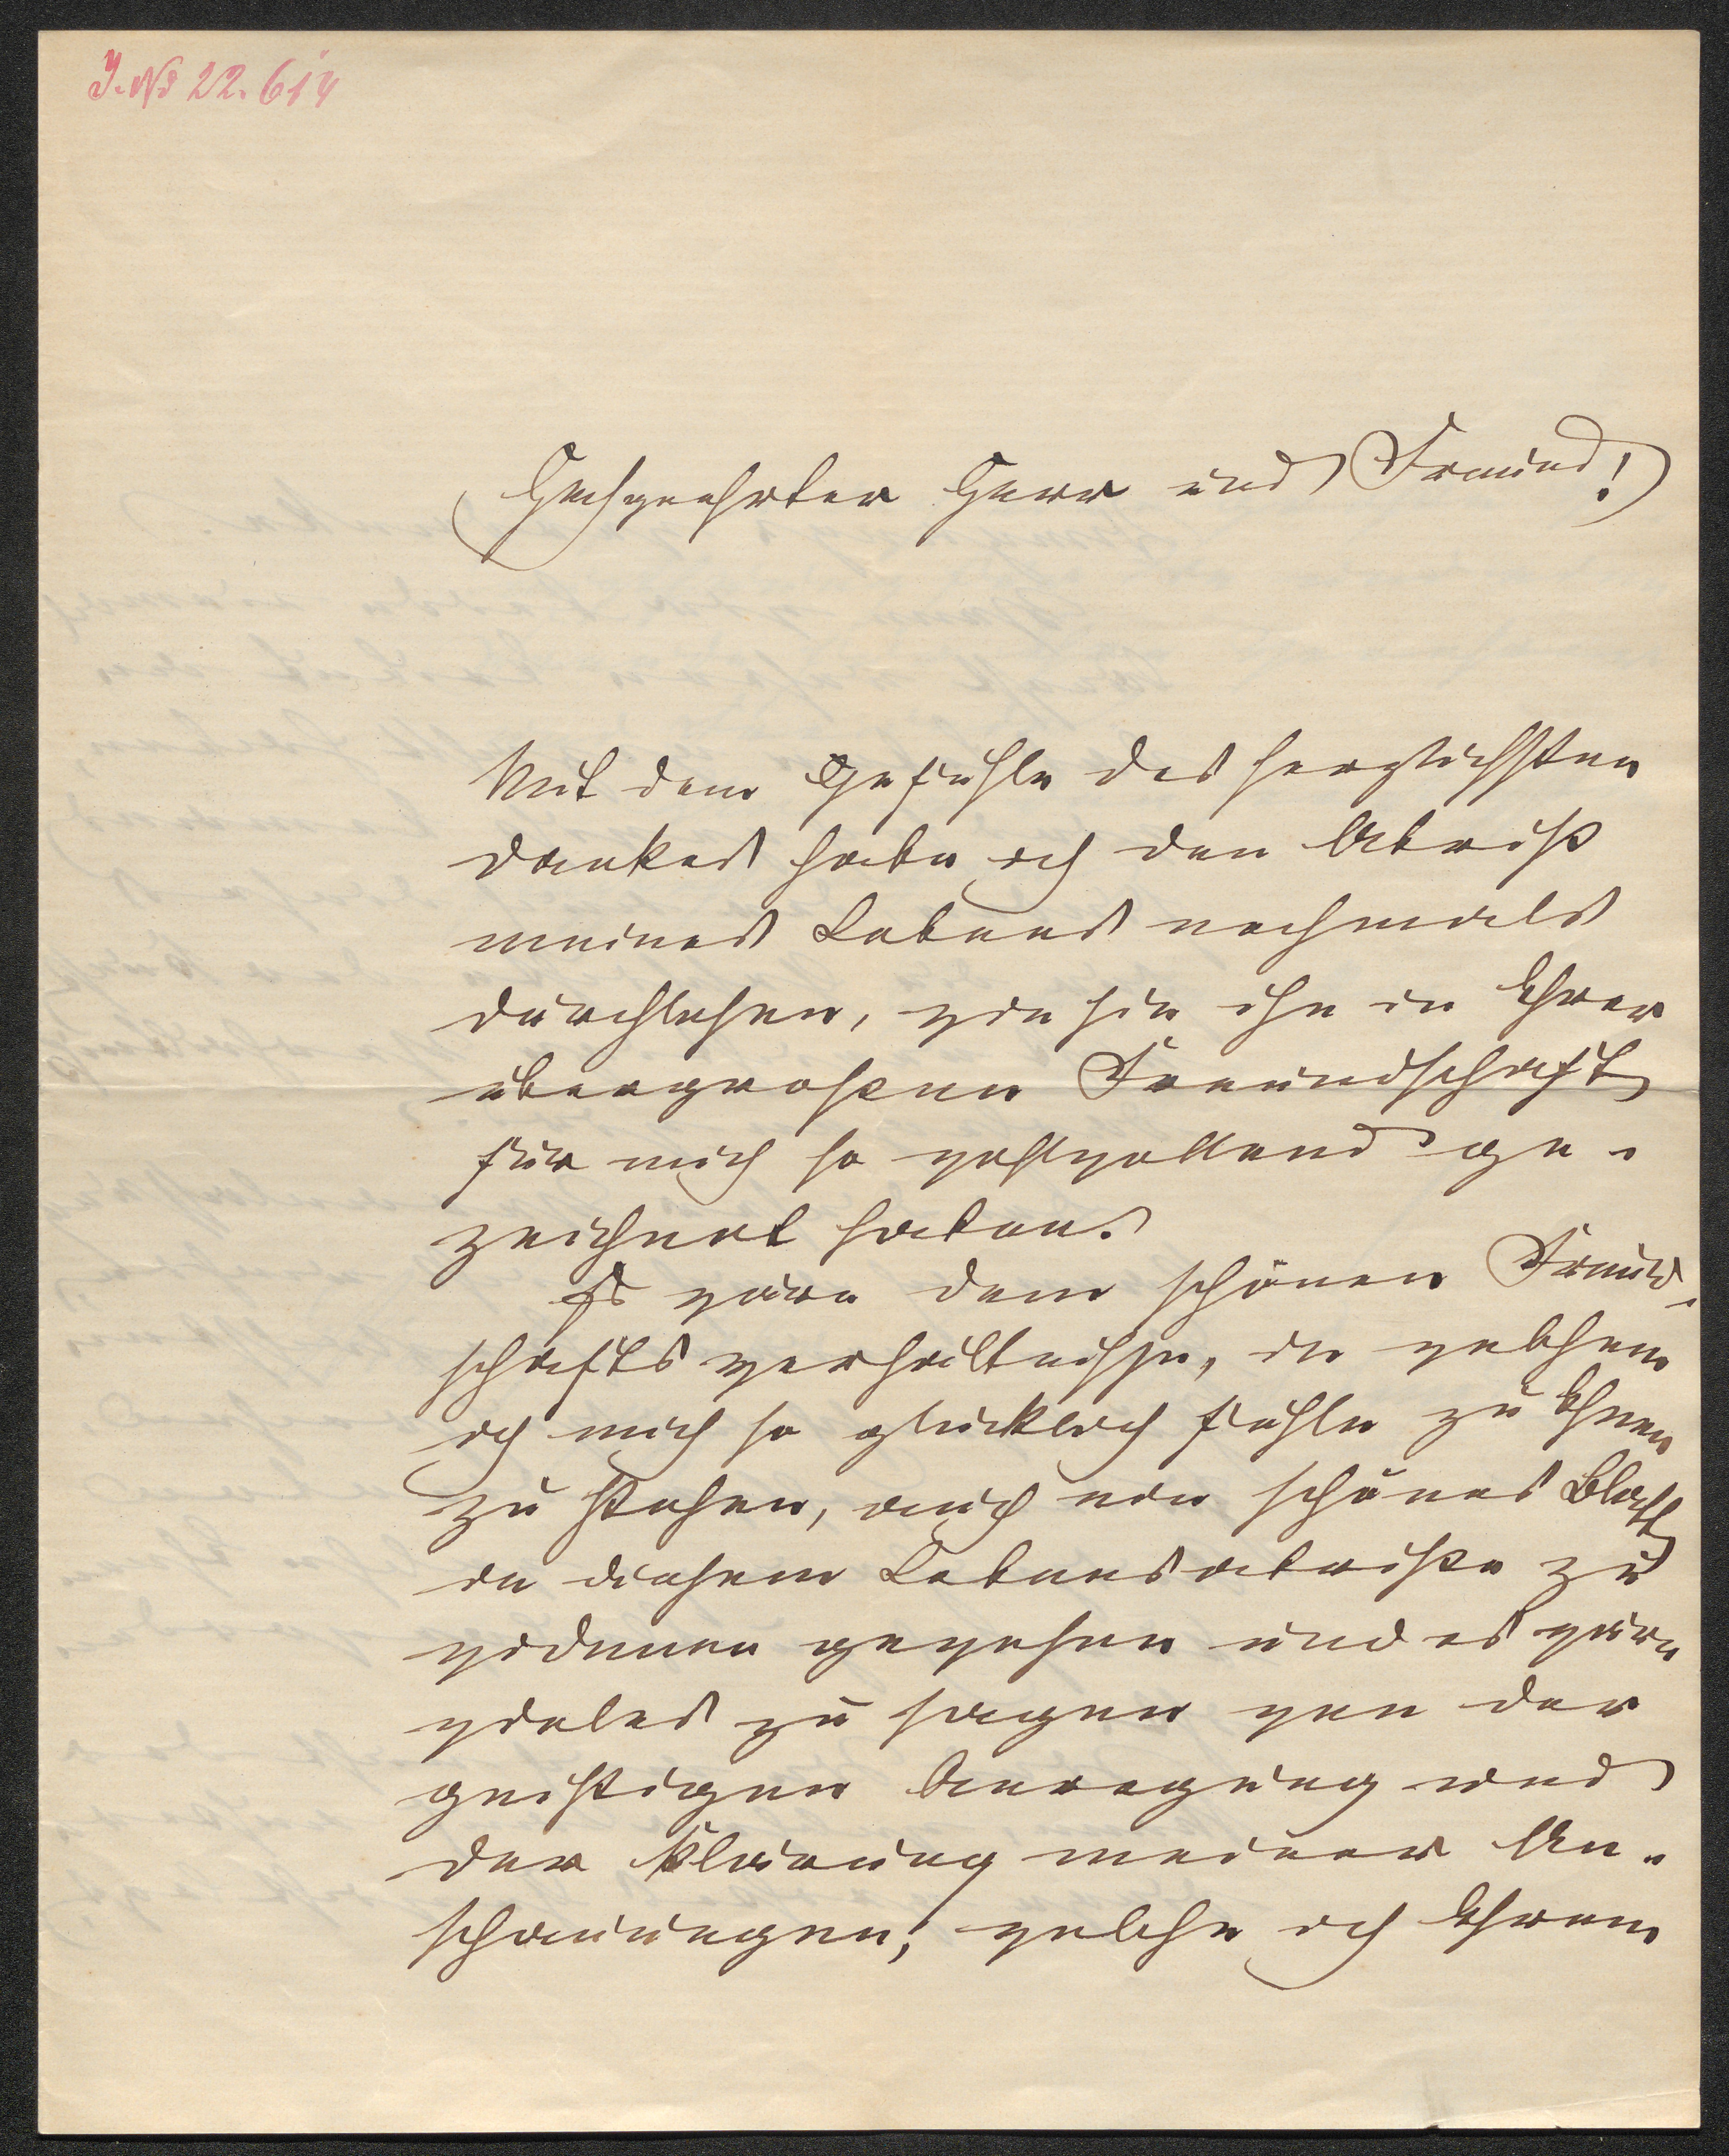 I. No 22.614
Hochgeehrter Herr und Freund!
Mit dem Gefühle des herzlichsten
Dankes habe ich den Abriß
meines Lebens nochmals
durchlesen, wie sie ihn in Ihrer
übergroßen Freundschaft
für mich so wohlwollend ge-
zeichnet haben.
Es wäre dem schönen Freund-
schafts verhältnisse, in welchem
ich mich so glücklich fühle zu Ihnen
zu stehen, auch ein schönes Blatt
in diesem Lebensabriße zu
widmen gewesen und es wäre
vieles zu sagen von der
geistigen Anregung und
der Klärung meiner An-
schauungen, welche ich Ihrem